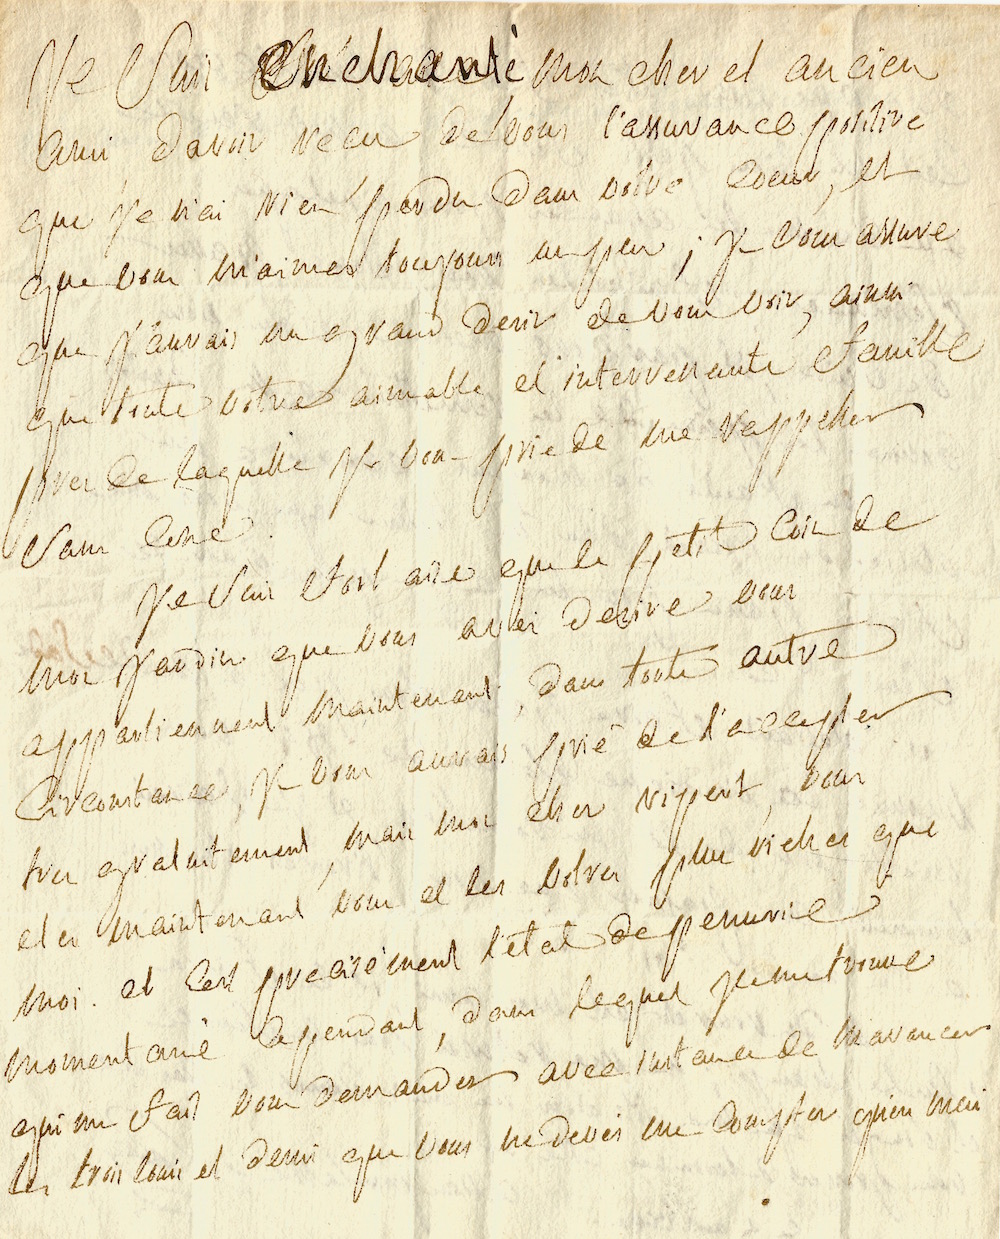 Je suis enchanté mon cher et ancien
ami d'avoir recu de vous l'assurance positive
que je n'ai rien perdu dans votre coeur, et
que vous m'aimes toujours un peu ; je vous assure
que j'aurais un grand desir de vous voir, ainsi
que toute votre aimable et interressante famille
pres de laquelle je vous prie de me rappeller
sans cesse.
Je suis fort aise que le petit coin de
mon jardin que vous avez desiré vous
appartiennent maintenant, dans toute autre
circonstance, je vous aurais prié de l'accepter
tres gratuitement, mais mon cher vous
etes maintenant vous et les votres plus riches que
moi. et c'est precisément l'état de penurie
momentané cependant, dans lequel je me trouve
qui me fait vous demander avec instance de m'avancer
les trois louis et demi que vous ne devez me compter qu'en mai